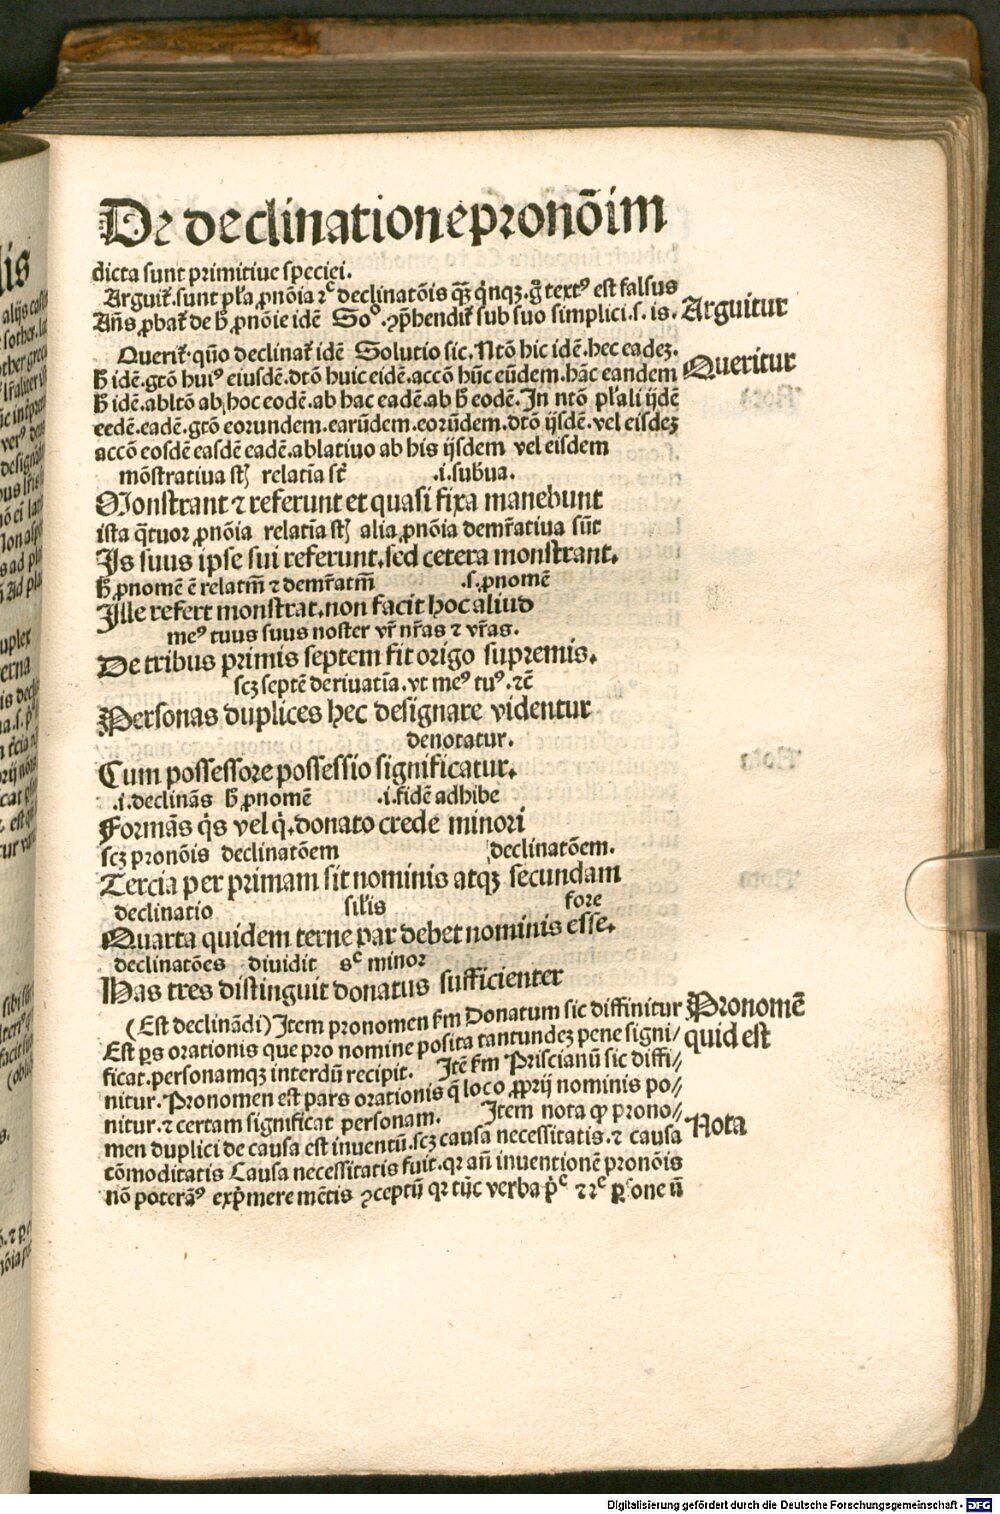 De declinatione pronoīm
dicta sunt primitiue speciei.
Arguit̄.sunt pl̄a ꝓnōia 2ᶜ declinatōis qᷓꝫ qͥnqꝫ.gͦ textꝰ est falsus
Arguitur
Añs ꝓbat̄ de h̄ ꝓnōie idē Soᵒ.ꝯp̄hendit̄ sub suo simplici.s.is.
Querit̄.quō declinat̄ idē Solutio sic.Ntō hic idē.hec eadeꝫ.
Queritur
h̄ idē.gtō huiꝰ eiusdē.dtō huic eidē.accō hūc eūdem.hāc eandem
h̄ idē.abltō ab hoc eodē.ab hac eadē.ab h̄ eodē.In ntō pl̄ali ijdē
eedē.eadē.gtō eorundem.earūdem.eorūdem.dtō ijsdē.vel eisdeꝫ
accō eosdē easdē eadē.ablatiuo ab his ijsdem vel eisdem
mōstratiua st̄ relatīa st̄ .i.subūa.
Monstrant ⁊ referunt et quasi fixa manebunt
ista qͣtuor ꝓnōia relatīa st̄ alia ꝓnōia demr̄atiua sūt
Is suus ipse sui referunt.sed cetera monstrant.
h̄ ꝓnomē ē relatm̄ ⁊ demr̄atm̄ .s.ꝓnomē
Ille refert monstrat.non facit hoc aliud
meꝰ tuus suus noster vr̄ nr̄as ⁊ vr̄as.
De tribus primis septem fit origo supremis.
scꝫ septē deriuatīa.vt meꝰ tuꝰ.⁊c̄
Personas duplices hec designare videntur
denotatur.
Cum possessore possessio significatur.
.i.declināns h̄ ꝓnomē .i.fidē adhibe
Formās qͥs vel qͥ.donato crede minori
scꝫ pronōis declinatōem declinatōem.
Tercia per primam sit nominis atqꝫ secundam
declinatio sil̄is fore
Quarta quidem terne par debet nominis esse.
declinatōes diuidit sᶜ minor
Has tres distinguit donatus sufficienter
(Est declināndi) Item pronomen s̄m Donatum sic diffinitur
Pronomē
Est p̄s orationis que pro nomine posita tantundeꝫ pene signi/
quid est
ficat.personamqꝫ interdū recipit. Itē s̄m Priscianū sic diffi//
nitur.Pronomen est pars orationis q̄ loco ꝓprij nominis po//
nitur.⁊ certam significat personam. Item nota ꝙ prono//
Nota
men duplici de causa est inuentū.scꝫ causa necessitatis.⁊ causa
cōmoditatis Causa necessitatis fuit.qꝛ añ inuentionē pronōis
nō poterāꝰ exp̄mere mētis ꝯceptū qꝛ tūc verba p̄ᶜ ⁊ 2ᶜ
Digitalisierung gefördert durch die Deutsche Forschungsgemeinschaft - DFG